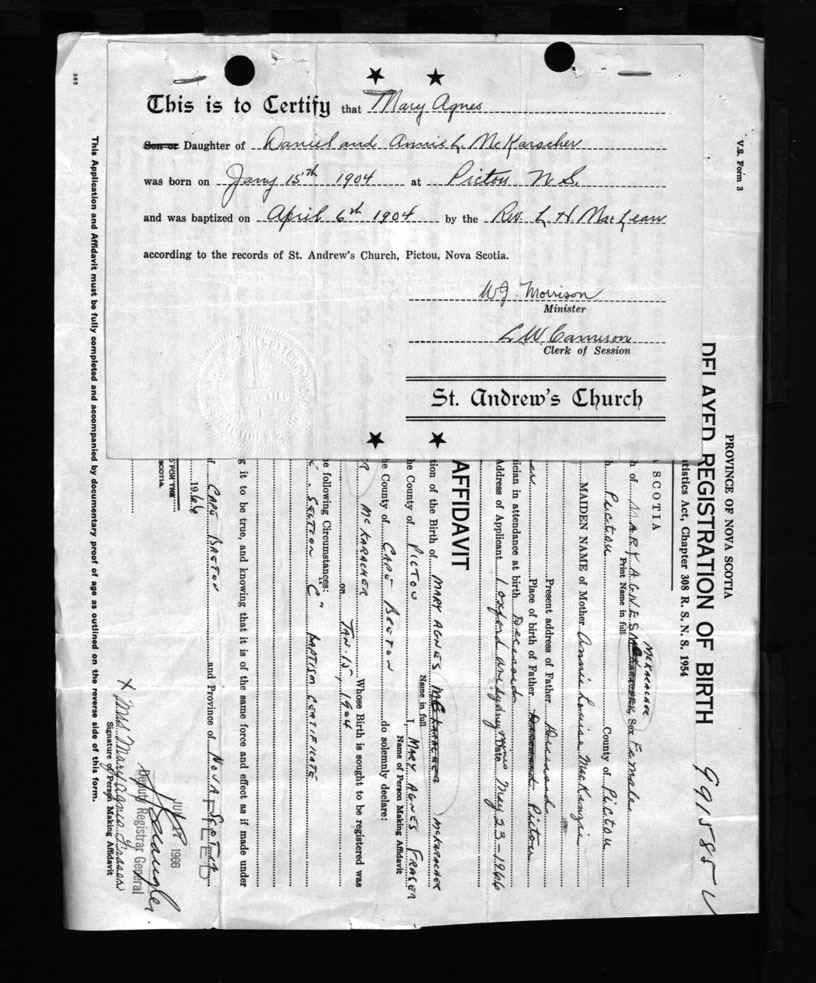 This is to Certify that Mary Agnes
Son or Daughter of Daniel and Annie L McKarscher
was born on Jany 15th 1904 at Pictou N S.
and was baptized on April 6th 1904 by the Rev. L H MacLean
according to the records of St. Andrew's Church, Pictou, Nova Scotia.
W.J. Morrison
Minister
L W Cameron
Clerk of Session
St. Andrew's Church
V.S. Form 3
PROVINCE OF NOVA SCOTIA
DELAYED REGISTRATION OF BIRTH 991585
atistics Act, Chapter 308 R. S. N. S. 1954
SCOTIA
h of MARY AGNES McKARACHER Sex Female
Print Name in full
h Pictou County of Pictou
MAIDEN NAME of Mother Annie Louise MacKenzie
Present address of Father Deceased
Place of birth of Father Deceased Pictou
ician in attendance at birth Deceased
Address of Applicant Date May 23-1966
AFFIDAVIT
ion of the Birth of MARY AGNES McKARACHER
Name in full
he County of PICTOU I, MARY AGNES FRASER
Name of Person Making Affidavit
he County of CAPE BRETON do solemnly declare:
McKARACHER Whose Birth is sought to be registered was
on JAN. 15, 1904
e following Circumstances:
SECTION "C" BAPTISM CERTIFICATE
g it to be true, and knowing that it is of the same force and effect as if made under
f CAPE BRETON and Province of NOVA SCOTIA
1966
FOR THE
SCOTIA
JUL 27 1966
Deputy Registrar General
X Mrs Mary Agnes Fraser
Signature of Person Making Affidavit
This Application and Affidavit must be fully completed and accompanied by documentary proof of age as outlined on the reverse side of this form.